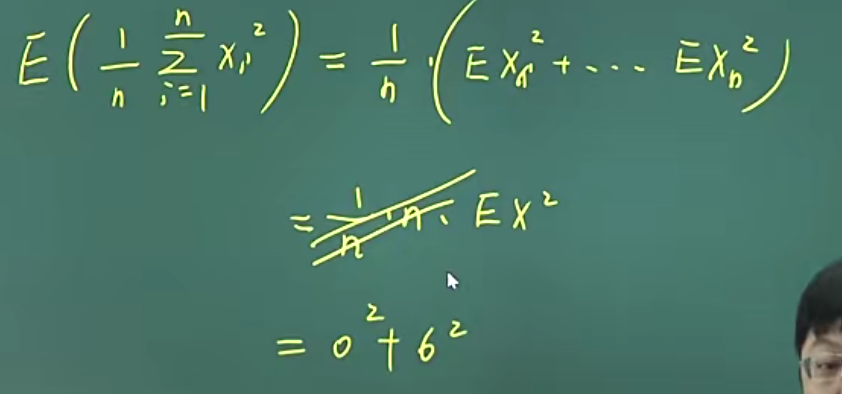 E(1/n Σ_{i=1}^{n} X_i²) = 1/n · (EX_1² + ... EX_n²)
= 1/n · n · EX²
= 0² + 6²